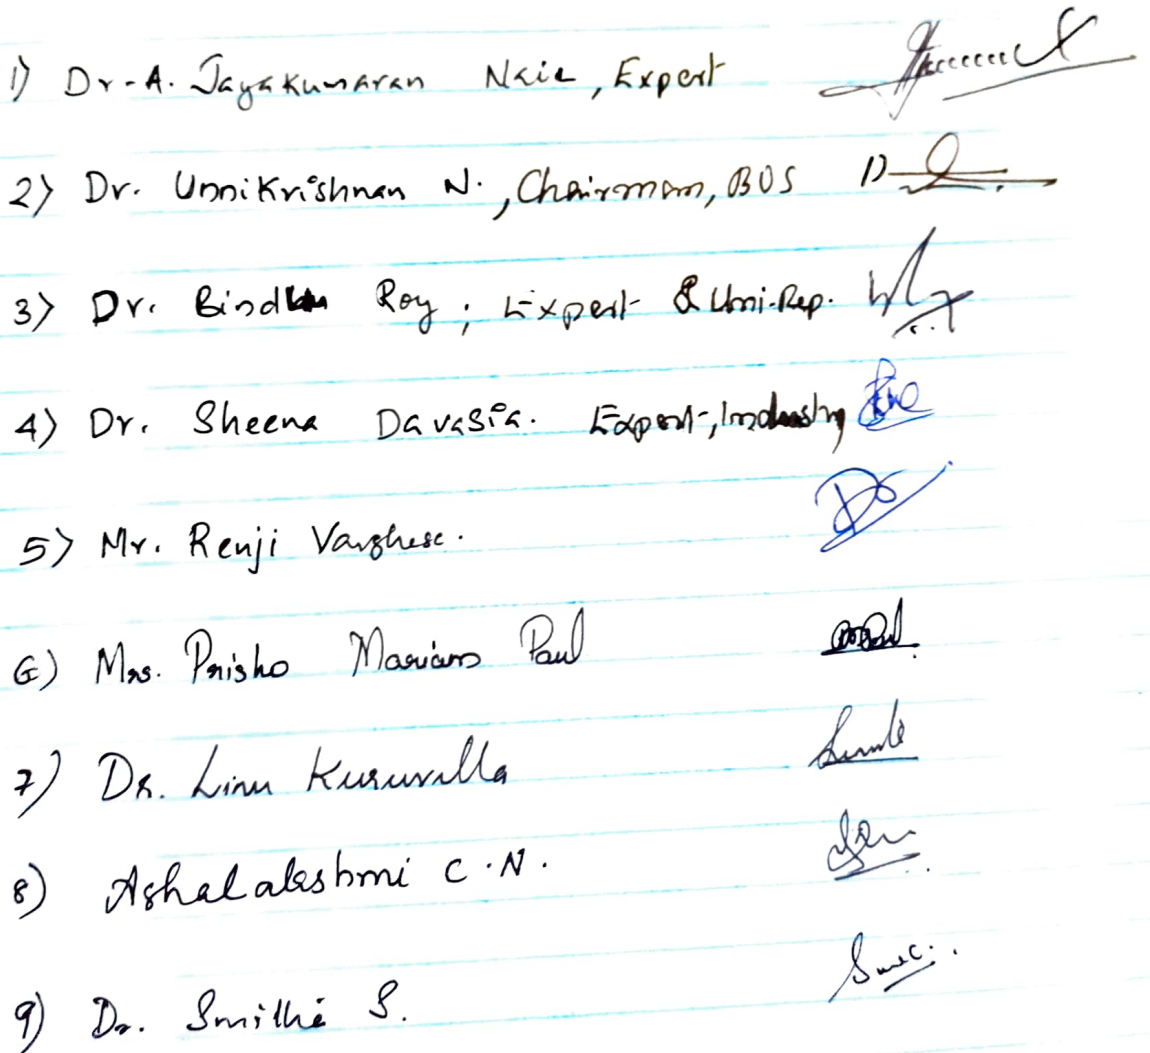 1) Dr. A. Jayakumaran Nair, Expert
2) Dr. Unnikrishnan N., Chairman, BOS
3) Dr. Bindhu Roy, Expert & Uni-Rep.
4) Dr. Sheena Davasia. Expert, Industry
5) Mr. Renji Varghese.
6) Mrs. Prisho Mariam Paul
7) Dr. Linu Kuruvilla
8) Ashalakshmi C.N.
9) Dr. Smitha S.